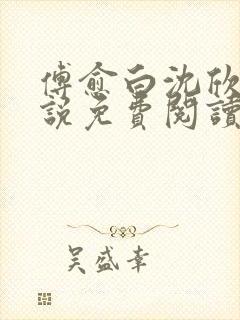 傅愈白沈欣
說免費閱讀
吴盛幸